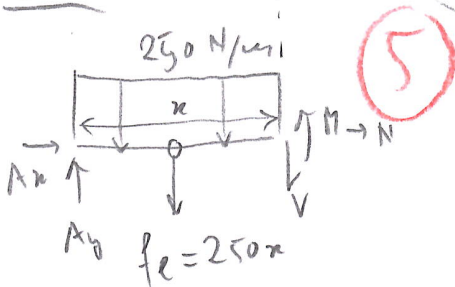 250 N/m
5
x
M → N
Ax
Ay
V
fR = 250x